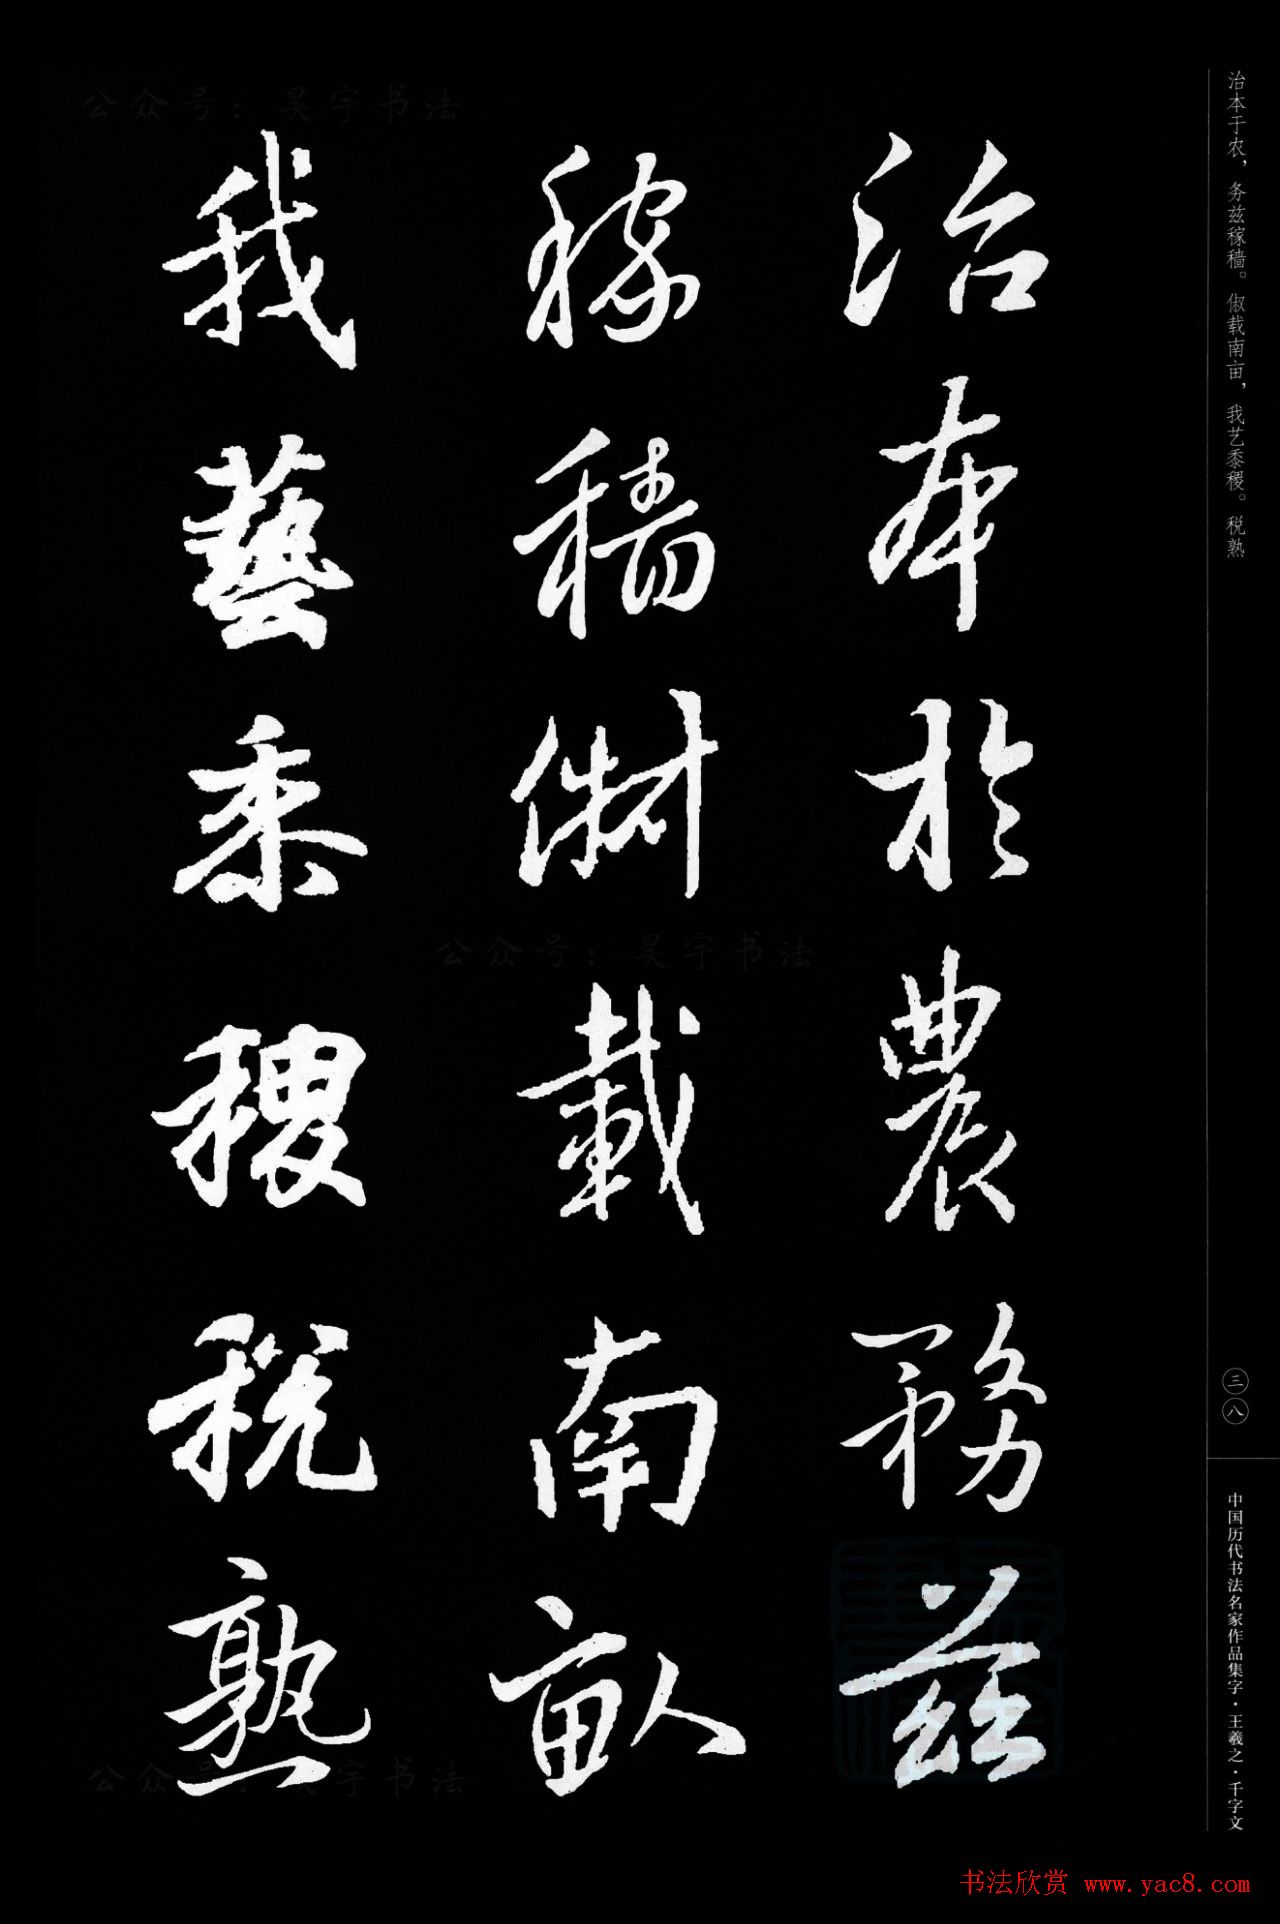 治本于农，务兹稼穑。俶载南亩，我艺黍稷。税熟
治本於農務兹
稼穡俶載南畝
我藝黍稷税熟
三八
中国历代书法名家作品集字·王羲之·千字文
公众号：昊宇书法
公众号：昊宇书法
公众号：昊宇书法
书法欣赏 www.yac8.com